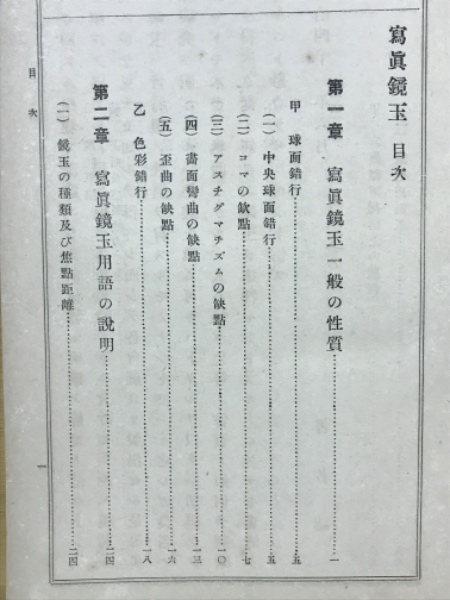 寫眞鏡玉 目次
第一章 寫眞鏡玉一般の性質…………一
甲 球面錯行…………五
(一) 中央球面錯行…………五
(二) コマの缺點…………七
(三) アスチグマチズムの缺點…………一〇
(四) 畵面彎曲の缺點…………一三
(五) 歪曲の缺點…………一六
乙 色彩錯行…………一八
第二章 寫眞鏡玉用語の說明…………二四
(一) 鏡玉の種類及び焦點距離…………二四
目次
一